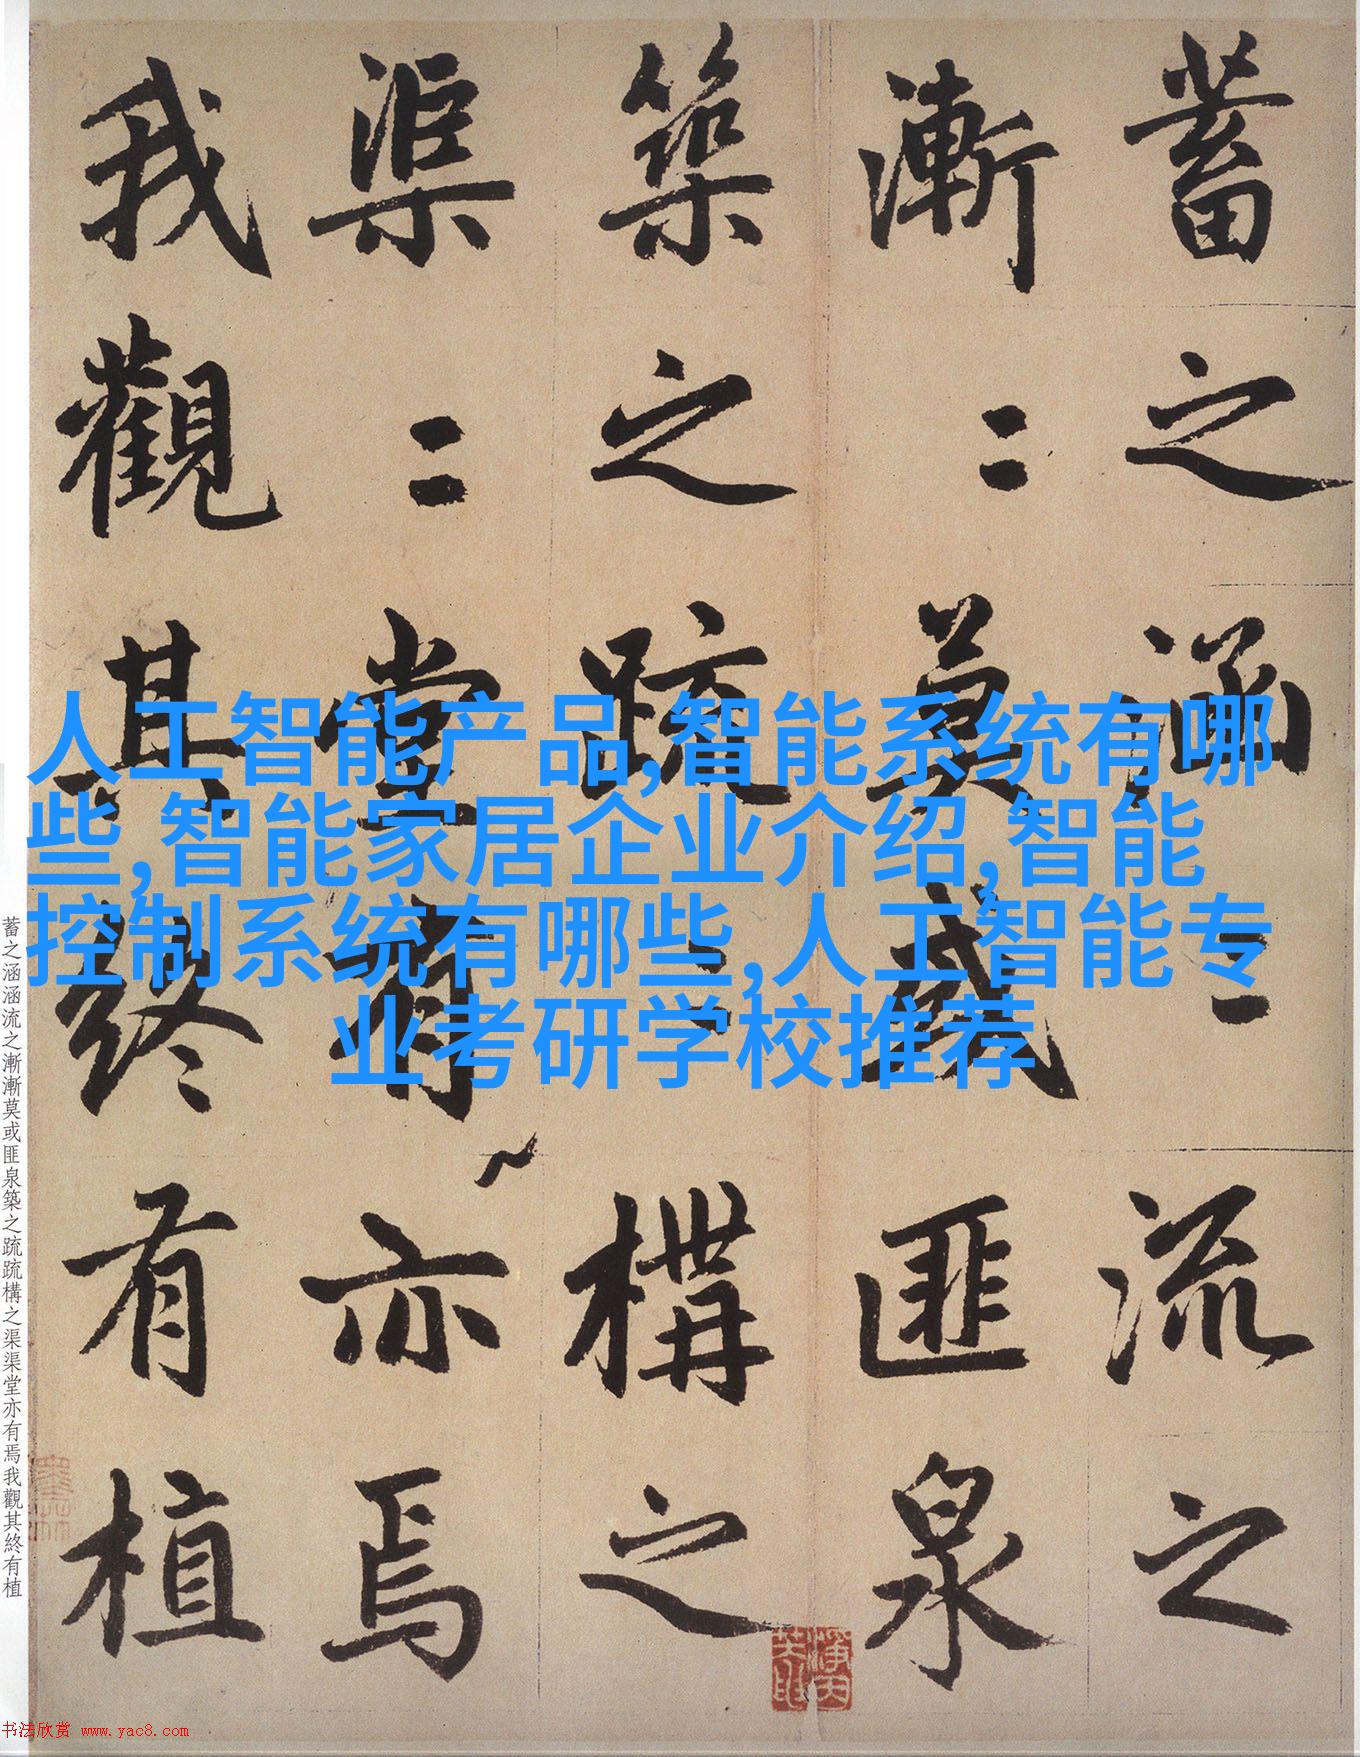 蓄之涵〻流之
漸〻莫或匪泉
築之疏〻構之
渠〻堂有亦焉
我觀其終有植
人工智能产品,智能系统有哪
些,智能家居企业介绍,智能
控制系统有哪些,人工智能专
业考研学校推荐
蓄之涵涵流之漸漸莫或匪泉築之疏疏構之渠渠堂亦有焉我觀其終有植
书法欣赏 www.yac8.com